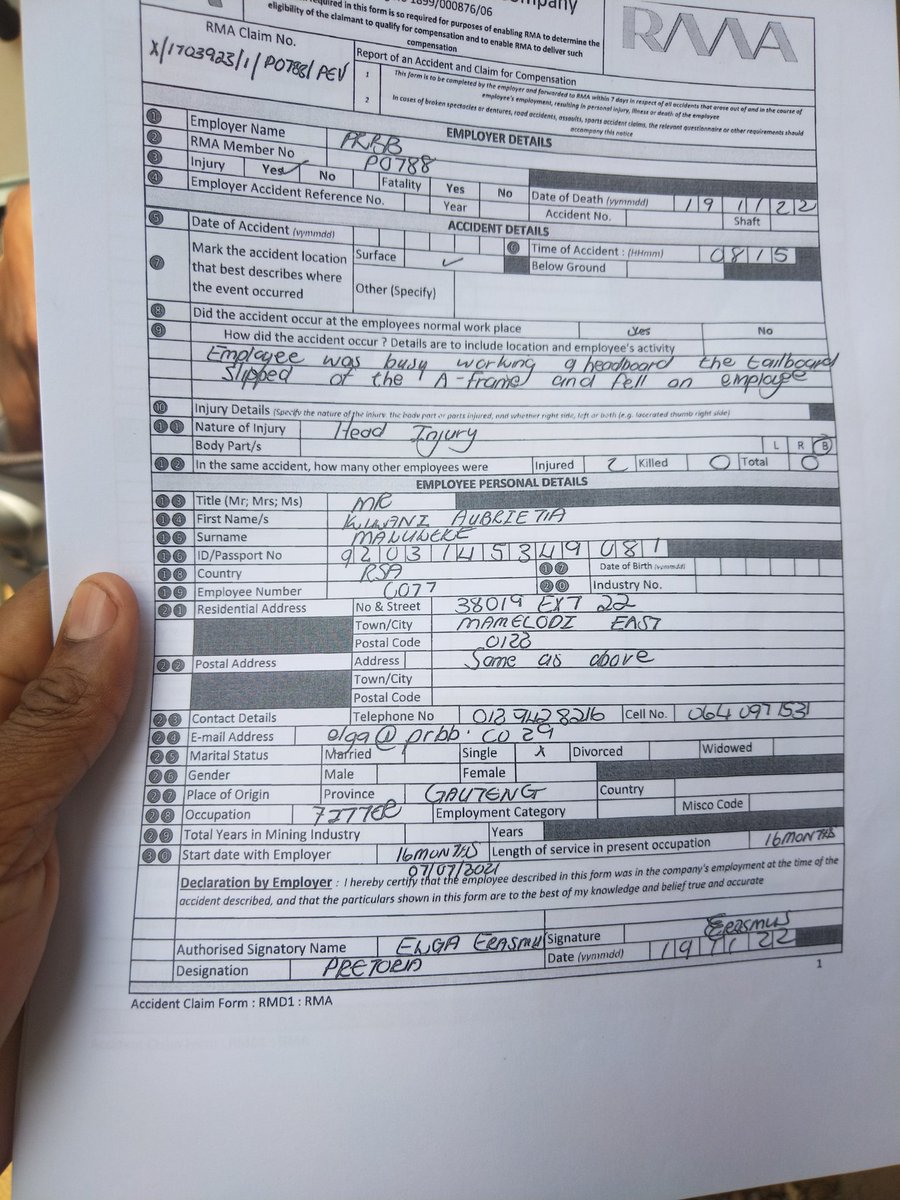 1899/000876/06
required in this form is so required for purposes of enabling RMA to determine the
eligibility of the claimant to qualify for compensation and to enable RMA to deliver such
compensation
RMA
RMA Claim No.
X/1703923/1/P0788/PEV
Report of an Accident and Claim for Compensation
1 This form is to be completed by the employer and forwarded to RMA within 7 days in respect of all accidents that arose out of and in the course of
employee's employment, resulting in personal injury, illness or death of the employee
2 In cases of broken spectacles or dentures, road accidents, assaults, sports accident claims, the relevant questionnaire or other requirements should
accompany this notice
EMPLOYER DETAILS
1 Employer Name PRBB
2 RMA Member No P0788
3 Injury Yes ✓ No Fatality Yes No Date of Death (yymmdd) 19 11 22
4 Employer Accident Reference No. Year Accident No. Shaft
ACCIDENT DETAILS
5 Date of Accident (yymmdd) 6 Time of Accident : (HHmm) 0815
7 Mark the accident location that best describes where the event occurred Surface ✓ Below Ground
Other (Specify)
8 Did the accident occur at the employees normal work place Yes No
9 How did the accident occur ? Details are to include location and employee's activity
Employee was busy working a headboard the tailboard
Slipped of the A-frame and fell on employee
10 Injury Details (Specify the nature of the injury, the body part or parts injured, and whether right side, left or both (e.g. lacerated thumb right side)
11 Nature of Injury Head Injury
Body Part/s L R B
12 In the same accident, how many other employees were Injured 2 Killed 0 Total 0
EMPLOYEE PERSONAL DETAILS
13 Title (Mr; Mrs; Ms) MR
14 First Name/s AUBRIETIA
15 Surname
16 ID/Passport No 9203145349081
17 Date of Birth (yymmdd)
18 Country RSA
19 Employee Number C077 20 Industry No.
21 Residential Address No & Street 38019 EXT 22
Town/City MAMELODI EAST
Postal Code 0122
22 Postal Address Address Same as above
Town/City
Postal Code
23 Contact Details Telephone No 012 9428216 Cell No. 064 097 1531
24 E-mail Address elga@prbb.co za
25 Marital Status Married Single X Divorced Widowed
26 Gender Male Female
27 Place of Origin Province GAUTENG Country
28 Occupation Employment Category Misco Code
29 Total Years in Mining Industry Years
30 Start date with Employer 16MONTHS Length of service in present occupation 16MONTHS
07/07/2021
Declaration by Employer : I hereby certify that the employee described in this form was in the company's employment at the time of the
accident described, and that the particulars shown in this form are to the best of my knowledge and belief true and accurate
Authorised Signatory Name ELGA ERASMUS Signature Erasmus
Designation PRETORIA Date (yymmdd) 19 11 22
1
Accident Claim Form : RMD1 : RMA